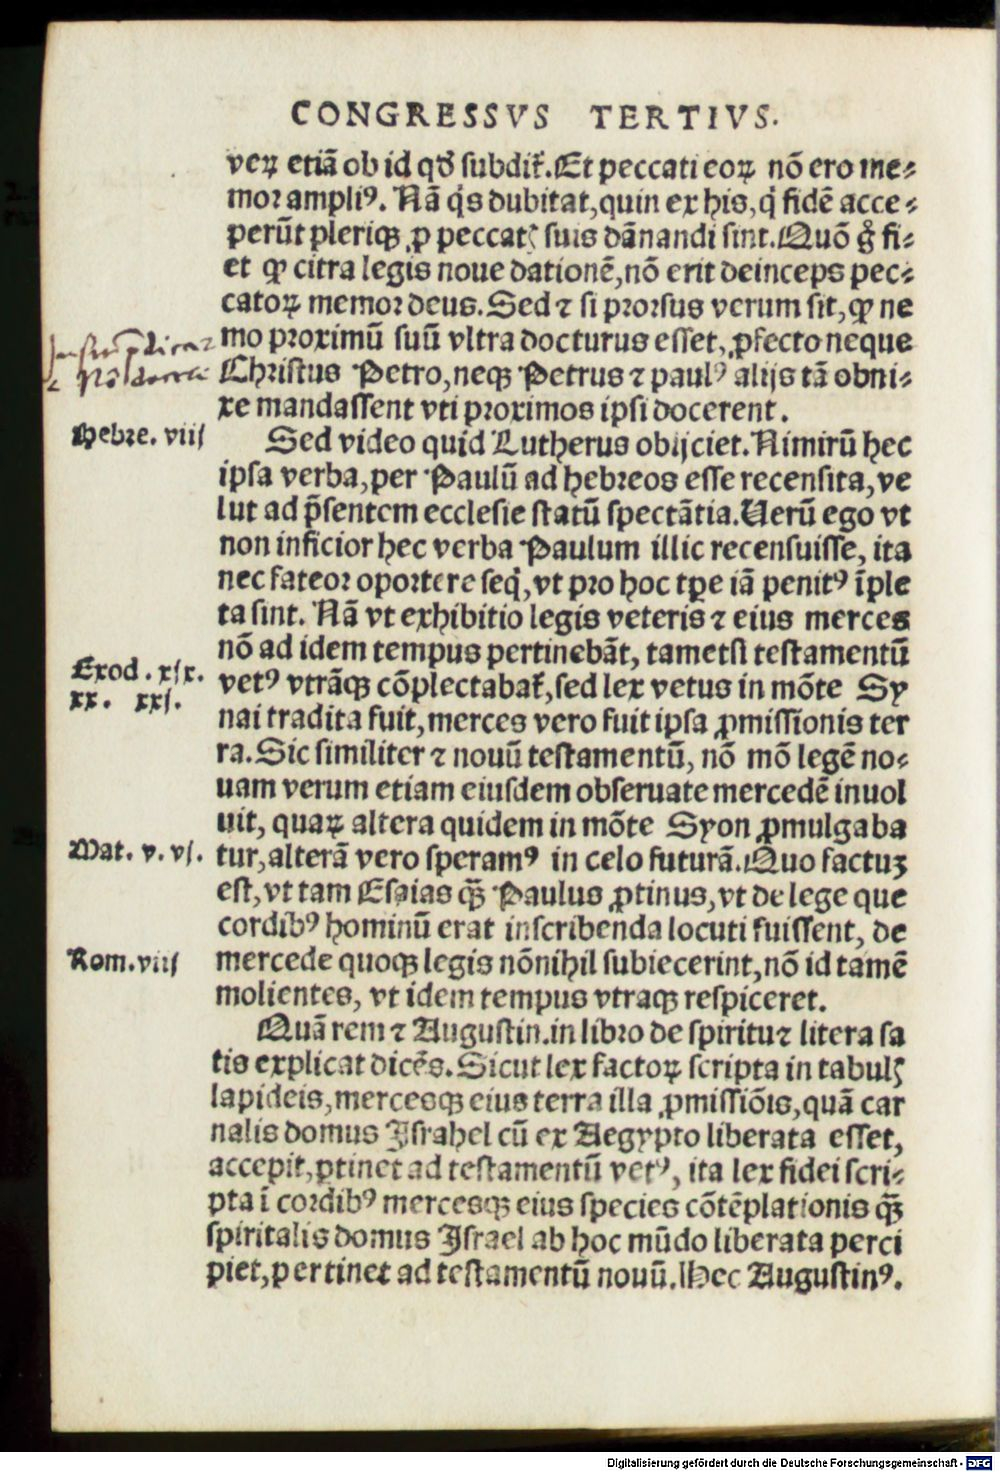 CONGRESSVS TERTIVS.
veꝝ etiā ob id qđ subdit̄. Et peccati eoꝝ nō ero me⸗
mor ampliꝰ. Nā q̇s dubitat, quin ex his, q̇ fidē acce⸗
perūt pleriqꝫ ꝓ peccatꝭ suis dānandi sint. Quō g̊ fi⸗
et ꝙ citra legis noue dationē, nō erit deinceps pec⸗
catoꝝ memor deus. Sed ⁊ si prorsus verum sit, ꝙ ne
mo proximū suū vltra docturus esset, ꝓfecto neque
Christus Petro, neqꝫ Petrus ⁊ paulꝰ alijs tā obni⸗
xe mandassent vti proximos ipsi docerent.
Hebre. viij
Sed video quid Lutherus obijciet. Nimirū hec
ipsa verba, per Paulū ad hebreos esse recensita, ve
lut ad p̄sentem ecclesie statū spectātia. Uerū ego vt
non inficior hec verba Paulum illic recensuisse, ita
nec fateor oportere seq̇, vt pro hoc tꝑe iā penitꝰ īple
ta sint. Nā vt exhibitio legis veteris ⁊ eius merces
nō ad idem tempus pertinebāt, tametsi testamentū
Exod. xix.
xx. xxj.
vetꝰ vtrāqꝫ cōplectabat̄, sed lex vetus in mōte Sy
nai tradita fuit, merces vero fuit ipsa ꝓmissionis ter
ra. Sic similiter ⁊ nouū testamentū, nō mō legē no⸗
uam verum etiam eiusdem obseruate mercedē inuol
uit, quaꝝ altera quidem in mōte Syon ꝓmulgaba
Mat. v. vj.
tur, alterā vero speramꝰ in celo futurā. Quo factuꝫ
est, vt tam Esaias qꝫ̄ Paulus ꝓtinus, vt de lege que
cordibꝰ hominū erat inscribenda locuti fuissent, de
Rom. viij
mercede quoqꝫ legis nōnihil subiecerint, nō id tamē
molientes, vt idem tempus vtraqꝫ respiceret.
Quā rem ⁊ Augustin. in libro de spiritu ⁊ litera sa
tis explicat dicēs. Sicut lex factoꝝ scripta in tabulꝭ
lapideis, mercesqꝫ eius terra illa ꝓmissiōis, quā car
nalis domus Israhel cū ex Aegypto liberata esset,
accepit, ꝑtinet ad testamentū vetꝰ, ita lex fidei scri⸗
pta ī cordibꝰ mercesqꝫ eius species cōtēplationis qꝫ̄
spiritalis domus Israel ab hoc mūdo liberata perci
piet, pertinet ad testamentū nouū. Hec Augustinꝰ.
Digitalisierung gefördert durch die Deutsche Forschungsgemeinschaft - DFG